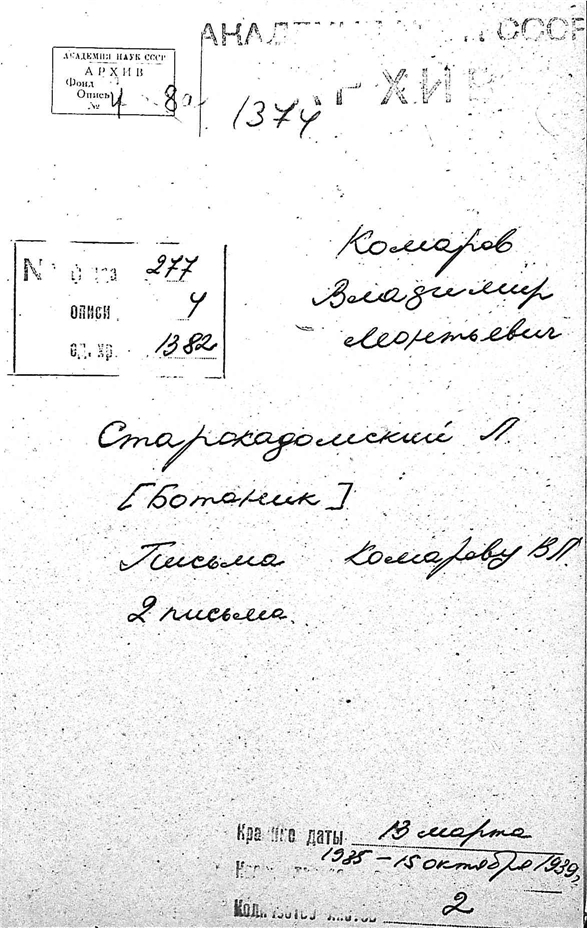 АКАДЕМИЯ НАУК СССР
АРХИВ
Фонд
Опись 4
№ 80
АКАДЕМИЯ НАУК СССР
АРХИВ
1374
№ фонда 277
описи 4
ед. хр. 1382
Комаров
Владимир
Леонтьевич
Старокадомский Л.
[Ботаник]
Письма Комарову В.Л.
2 письма.
Крайние даты 13 марта
1935 – 15 октября 1939 г.
Количество листов 2